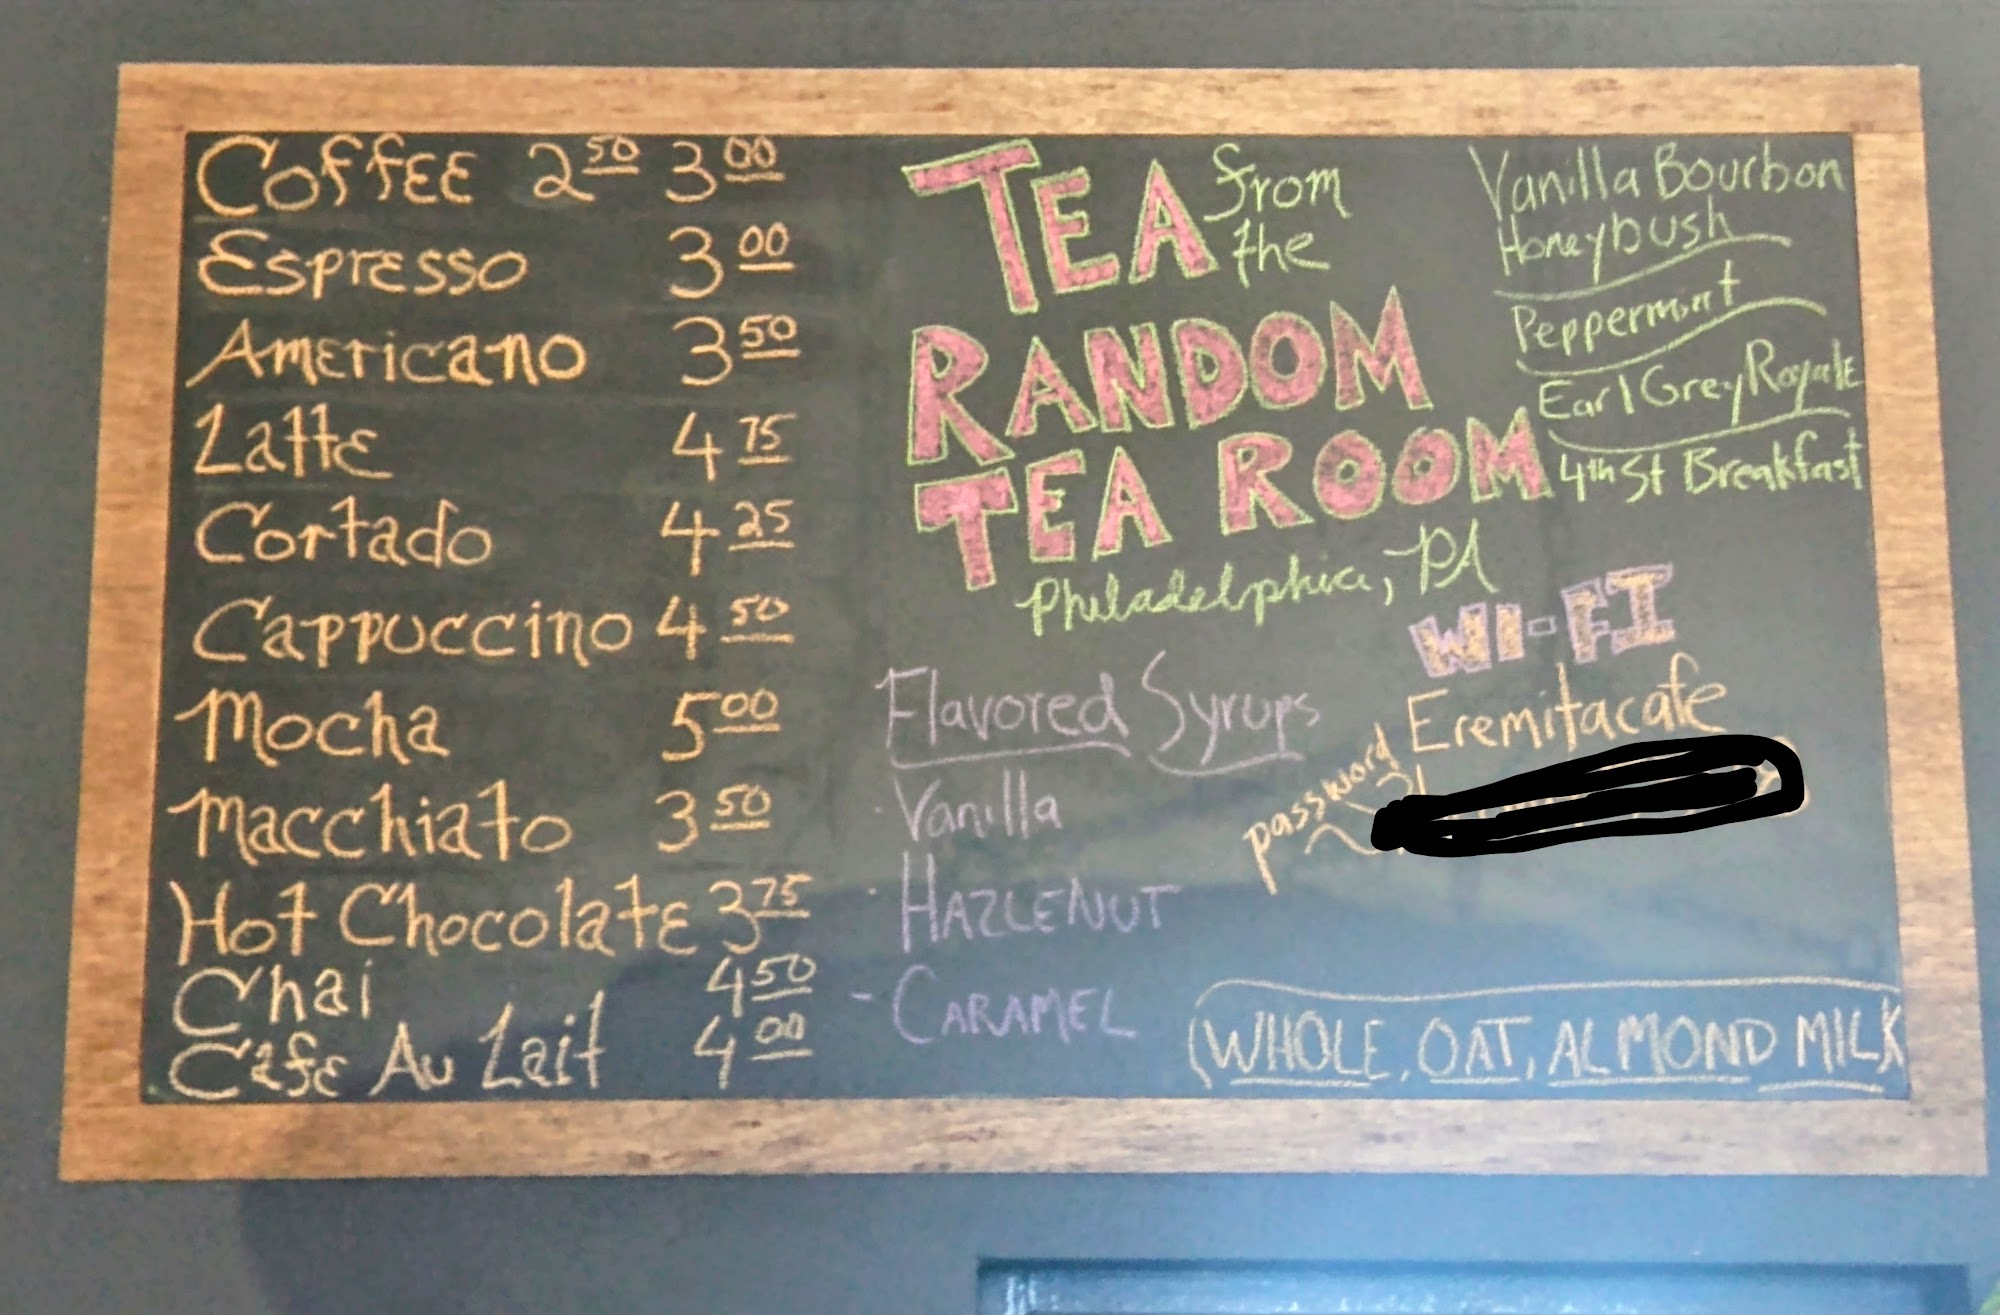 Coffee 2 50 3 00
Espresso 3 00
Americano 3 50
Latte 4 75
Cortado 4 25
Cappuccino 4 50
Mocha 5 00
Macchiato 3 50
Hot Chocolate 3 75
Chai 4 50
Cafe Au Lait 4 00
TEA from
the
RANDOM
TEA ROOM
Philadelphia, PA
Vanilla Bourbon
Honeybush
Peppermint
Earl Grey Royale
4th St Breakfast
WI-FI
Eremitacafe
password
Flavored Syrups
Vanilla
HAZLENUT
- CARAMEL
(WHOLE, OAT, ALMOND MILK